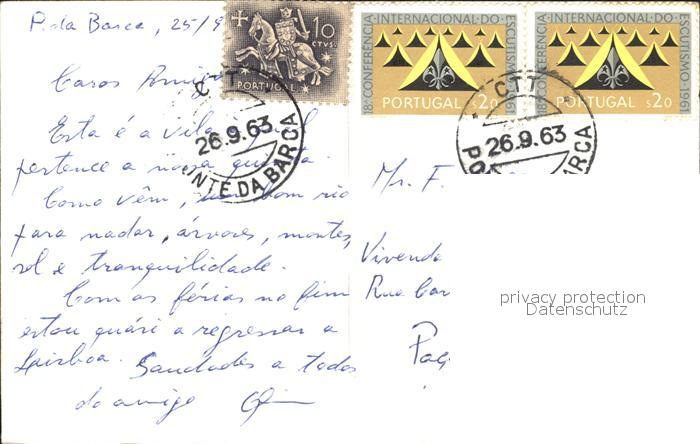 P. da Barca, 25/9
Caros Amigos
Esta é a vila
pertence a nossa quinta.
Como vêm, um bom rio
para nadar, árvores, montes,
sol e tranquilidade.
Com as férias no fim
estou quási a regressar a
Lisboa. Saudades a todos
do amigo
10
CTVS.
PORTUGAL
18ª CONFERÊNCIA INTERNACIONAL DO ESCUTISMO 1961
PORTUGAL s20
18ª CONFERÊNCIA INTERNACIONAL DO ESCUTISMO 1961
PORTUGAL s20
CTT
26.9.63
PONTE DA BARCA
CTT
26.9.63
Mr. F.
Vivenda
Rua
privacy protection
Datenschutz